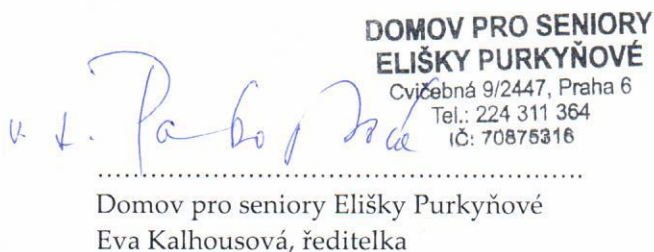 DOMOV PRO SENIORY
ELIŠKY PURKYŇOVÉ
Cvičebná 9/2447, Praha 6
Tel.: 224 311 364
IČ: 70875316
Domov pro seniory Elišky Purkyňové
Eva Kalhousová, ředitelka